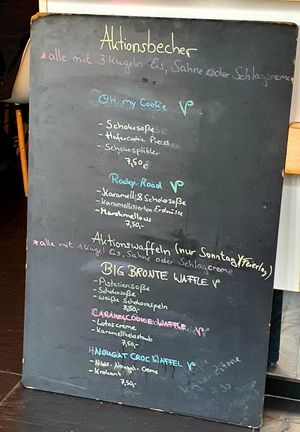 Aktionsbecher
*alle mit 3 Kugeln Eis, Sahne oder Schlagcreme
Oh my Cookie
- Schokosoße
- Hafercookie
- Schokosplitter
7,50€
Rocky Road
- Karamell & Schokosoße
- Karamellisierten Erdnüsse
- Marshmellows
7,50,-
Aktionswaffeln (nur Sonntag/Feiertag)
*alle mit 1 Kugel Eis, Sahne oder Schlagcreme
BIG BRONTE WAFFLE
- Pistaziensoße
- Schokosoße
- weiße Schokoraspeln
8,50,-
CARAMELCOOKIE WAFFLE
- Lotuscreme
- Karamellkeksstaub
7,50,-
NOUGAT CROC WAFFEL
- Nuss-Nougat-Creme
- Krokant
7,50,-